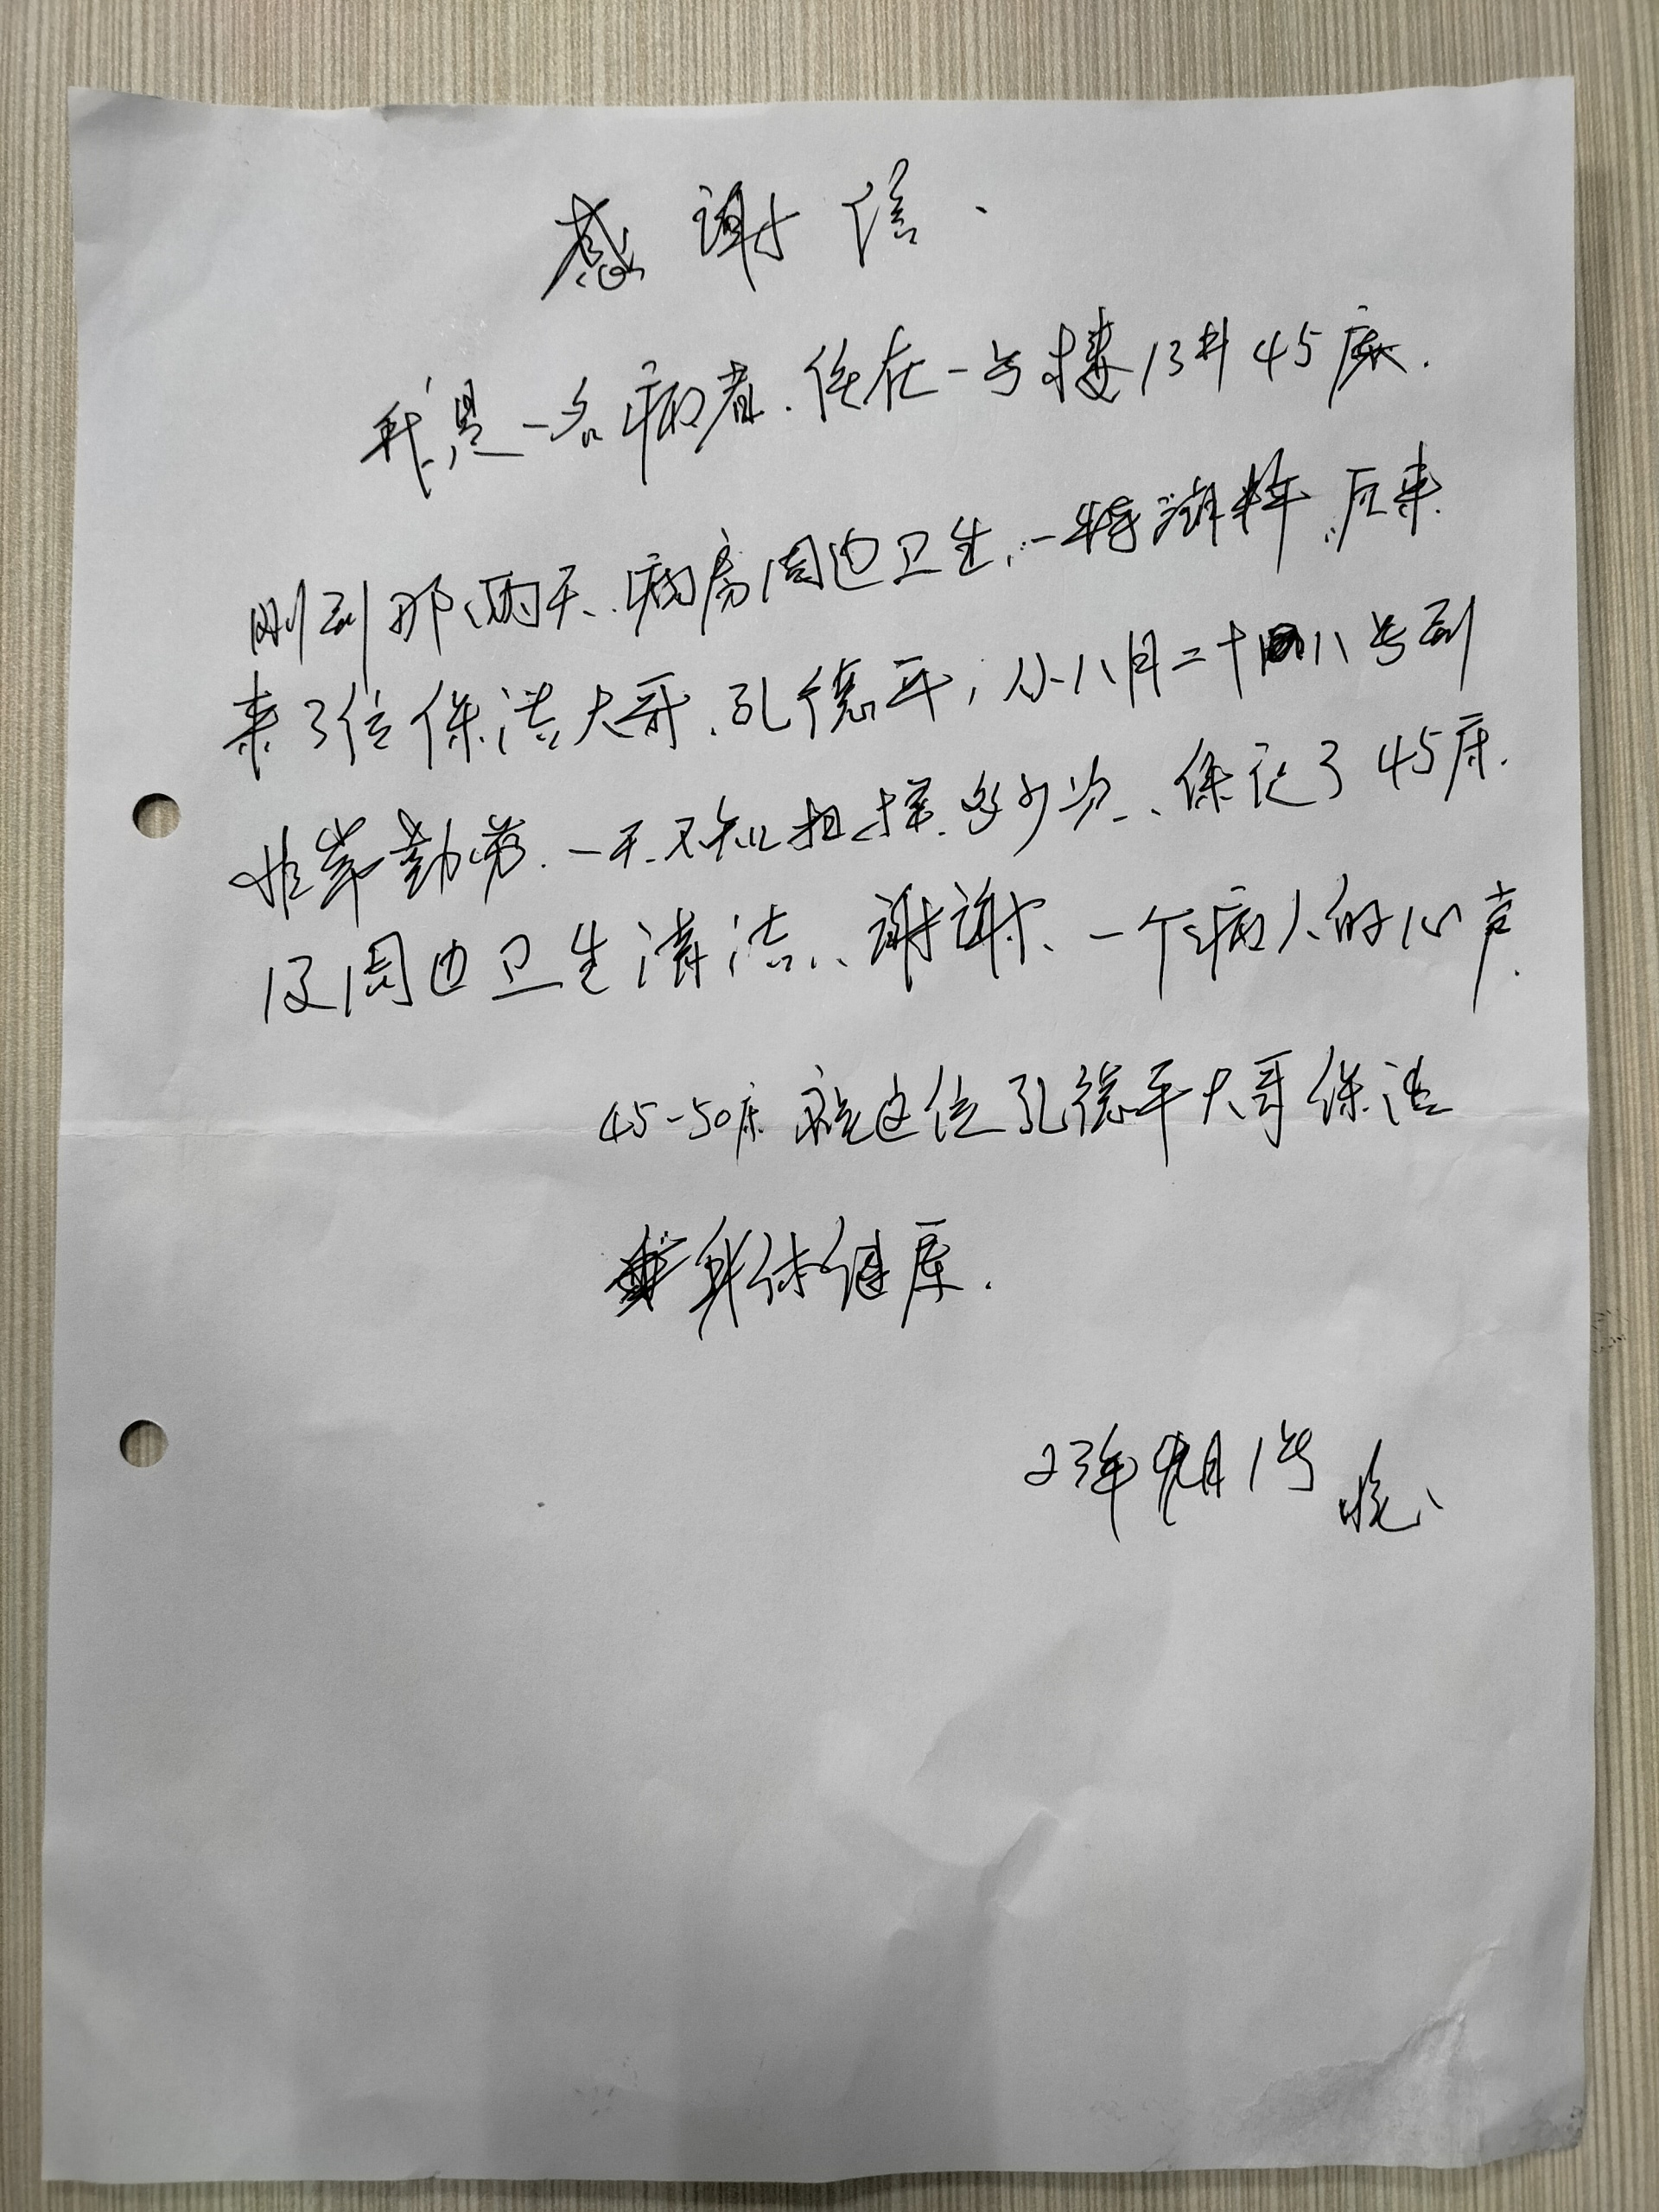 感谢信、
我是一名病者.住在一号楼13#45床.
刚到那两天、病房周边卫生,一特湖糊.后来
来了位保洁大哥.孔德平,从八月二十八号到
非常勤劳.一天不知担擦多少次、保证了45床.
及周边卫生清洁、谢谢、一个病人的心声.
45-50床就这位孔德平大哥保洁
身体健康.
23年9月1号晚、